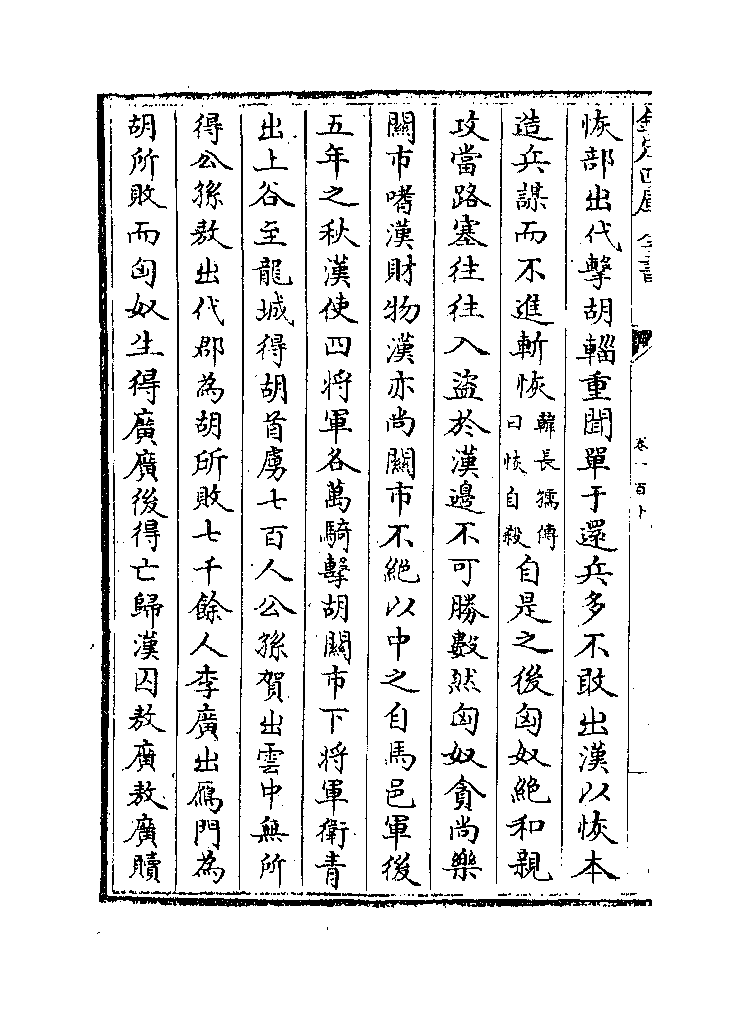 恢部出代擊胡輜重聞單于還兵多不敢出漢以恢本
造兵謀而不進斬恢韓長孺傳曰恢自殺自是之後匈奴絕和親
攻當路塞往往入盜於漢邊不可勝數然匈奴貪尚樂
關市嗜漢財物漢亦尚關市不絕以中之自馬邑軍後
五年之秋漢使四將軍各萬騎擊胡關市下將軍衛青
出上谷至龍城得胡首虜七百人公孫賀出雲中無所
得公孫敖出代郡為胡所敗七千餘人李廣出鴈門為
胡所敗而匈奴生得廣廣後得亡歸漢囚敖廣敖廣贖